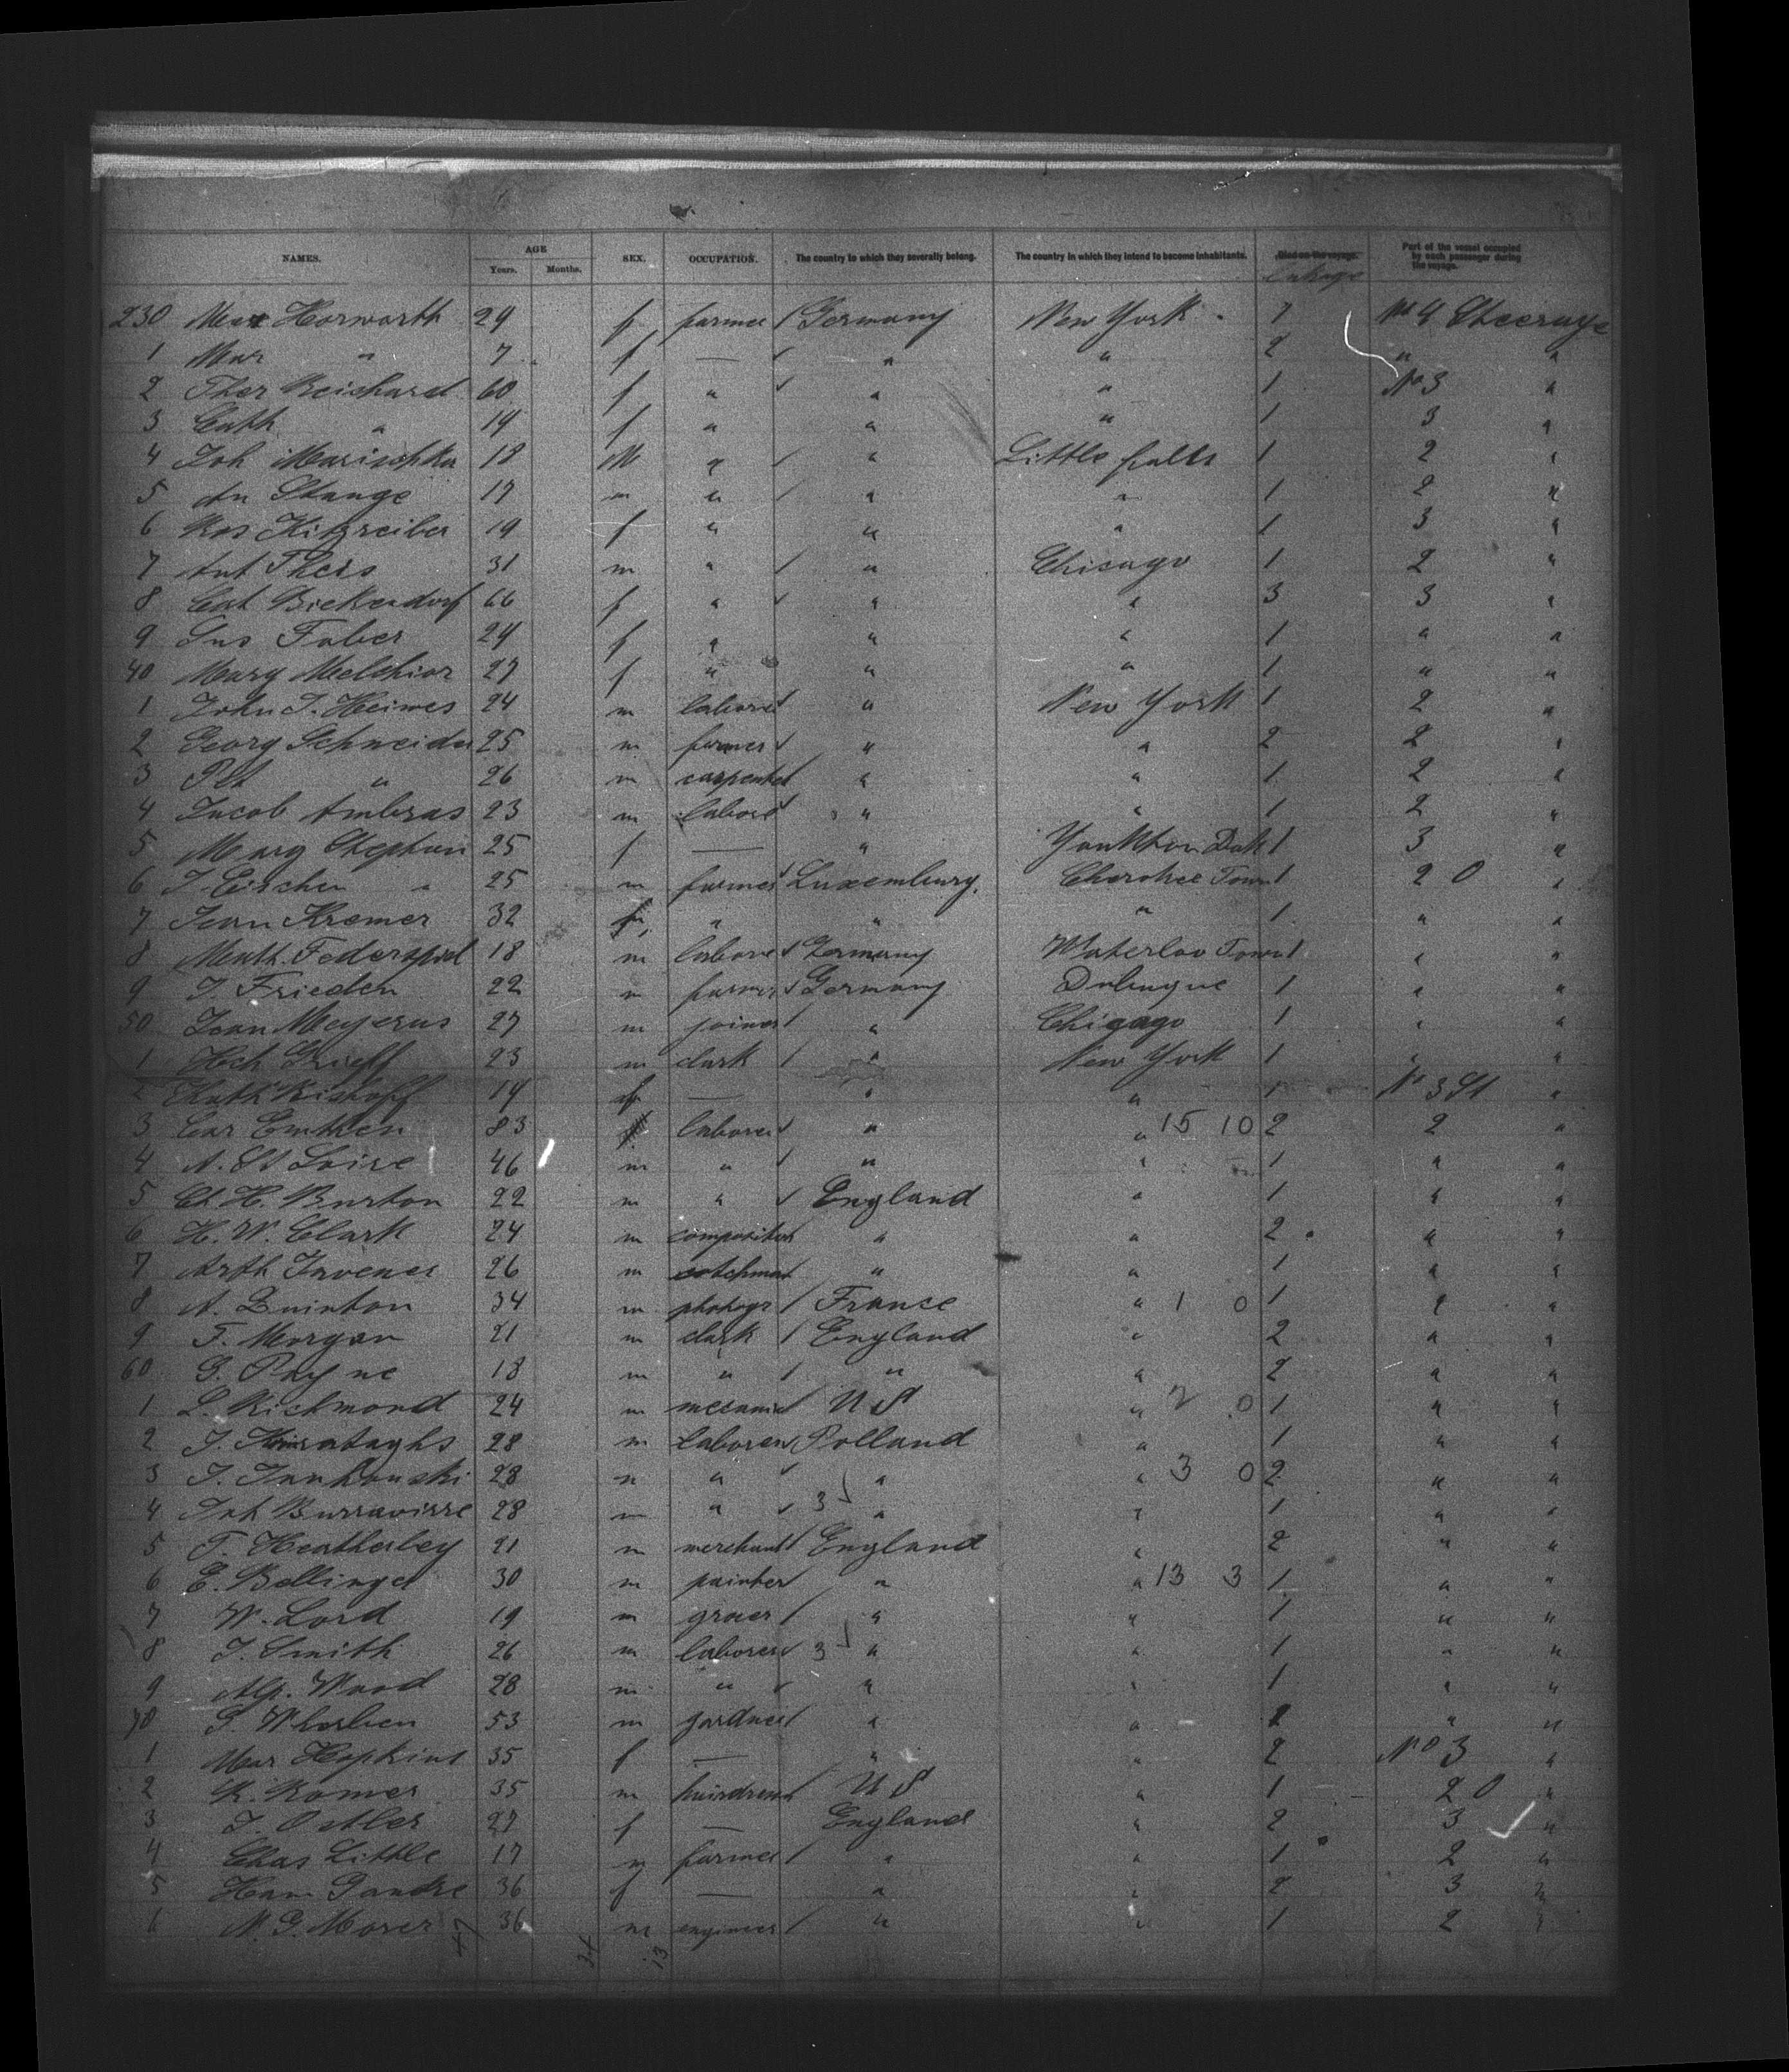 NAMES. AGE Years. Months. SEX. OCCUPATION. The country to which they severally belong. The country in which they intend to become inhabitants. Died on the voyage. Part of the vessel occupied by each passenger during the voyage.
230 Mar Horworth 24 f farmer / Germany New York No 4 Steerage
1 Mar " 7 f — ✓ " " 2 " "
2 Ther Reichard 60 f " ✓ " " 1 No 3 "
3 Cath " 19 f " " " 1 3 "
4 Joh Marischka 18 M " / " Little falls 1 2 "
5 An Stange 17 m " / " " 1 2 "
6 Ros Kitzreiber 19 f " " " 1 3 "
7 Ant Theis 31 m " / " Chicago 1 2 "
8 Cat Bickendorf 66 f " ✓ " " 3 3 "
9 Sus Faber 24 f " " " 1 " "
40 Mary Melchior 27 f " " " 1 " "
1 John J. Heimes 24 m laborer ✓ " New York 1 2 "
2 Georg Schneider 25 m farmer ✓ " " 2 2 "
3 Pet " 26 m carpenter / " " 1 2 "
4 Jacob Ambras 23 m labore ✓ " " 1 2 "
5 Marg Stephani 25 f — " Yankton Dak 1 3 "
6 J. Eischen " 25 m farmer ✓ Luxemburg. Cherokee Town 1 2 0 "
7 Jean Kremer 32 " " " 1 " "
8 Math. Federspiel 18 m labore ✓ Germany Waterloo Town 1 " "
9 J. Frieden 22 m farmer ✓ Germany Dubuque 1 " "
50 Jean Meyerus 27 m joiner / " Chigago 1 " "
1 Hch Grieff 23 m clark / " New York 1 " "
2 Kath Bishoff 19 f — " " 1 No 3 St "
3 Car Emtken 83 laborer ✓ " " 15 10 2 2 "
4 A. St Loire 46 m " ✓ " " 1 " "
5 Ch. H. Burton 22 m " ✓ England " 1 " "
6 H. W. Clark 24 m compositor / " " 2 " "
7 Arth Tavener 26 m " " 1 " "
8 A. Quinton 34 m photogr / France " 1 0 1 " "
9 F. Morgan 21 m clark / England " 2 " "
60 G. Payne 18 m " / " " 2 " "
1 L. Richmond 24 m mecanic / U S " 2 0 1 " "
2 28 m laborer ✓ Polland " 1 " "
3 J. Jankouski 28 m " ✓ " " 3 0 2 " "
4 28 m " ✓ 3 " " 1 " "
5 T. Heatherley 21 m merchant / England " 2 " "
6 E. Bellinger 30 m painter ✓ " " 13 3 1 " "
7 W. Lord 19 m grocer / " " 1 " "
8 J. Smith 26 m laborer ✓ 3 " " 1 " "
9 Alp. Wood 28 m " ✓ " " 1 " "
70 53 m gardner / " " 2 " "
1 Mar Hopkins 35 f — " " 2 No 3 "
2 R. Romer 35 m hairdress / U S " 1 2 0 "
3 J. Ostler 27 f — England " 2 3 "
4 Chas Little 17 m farmer / " " 1 2 "
5 36 f — " " 2 3 "
6 N. G. Morer 36 m engineer / " " 1 2 "